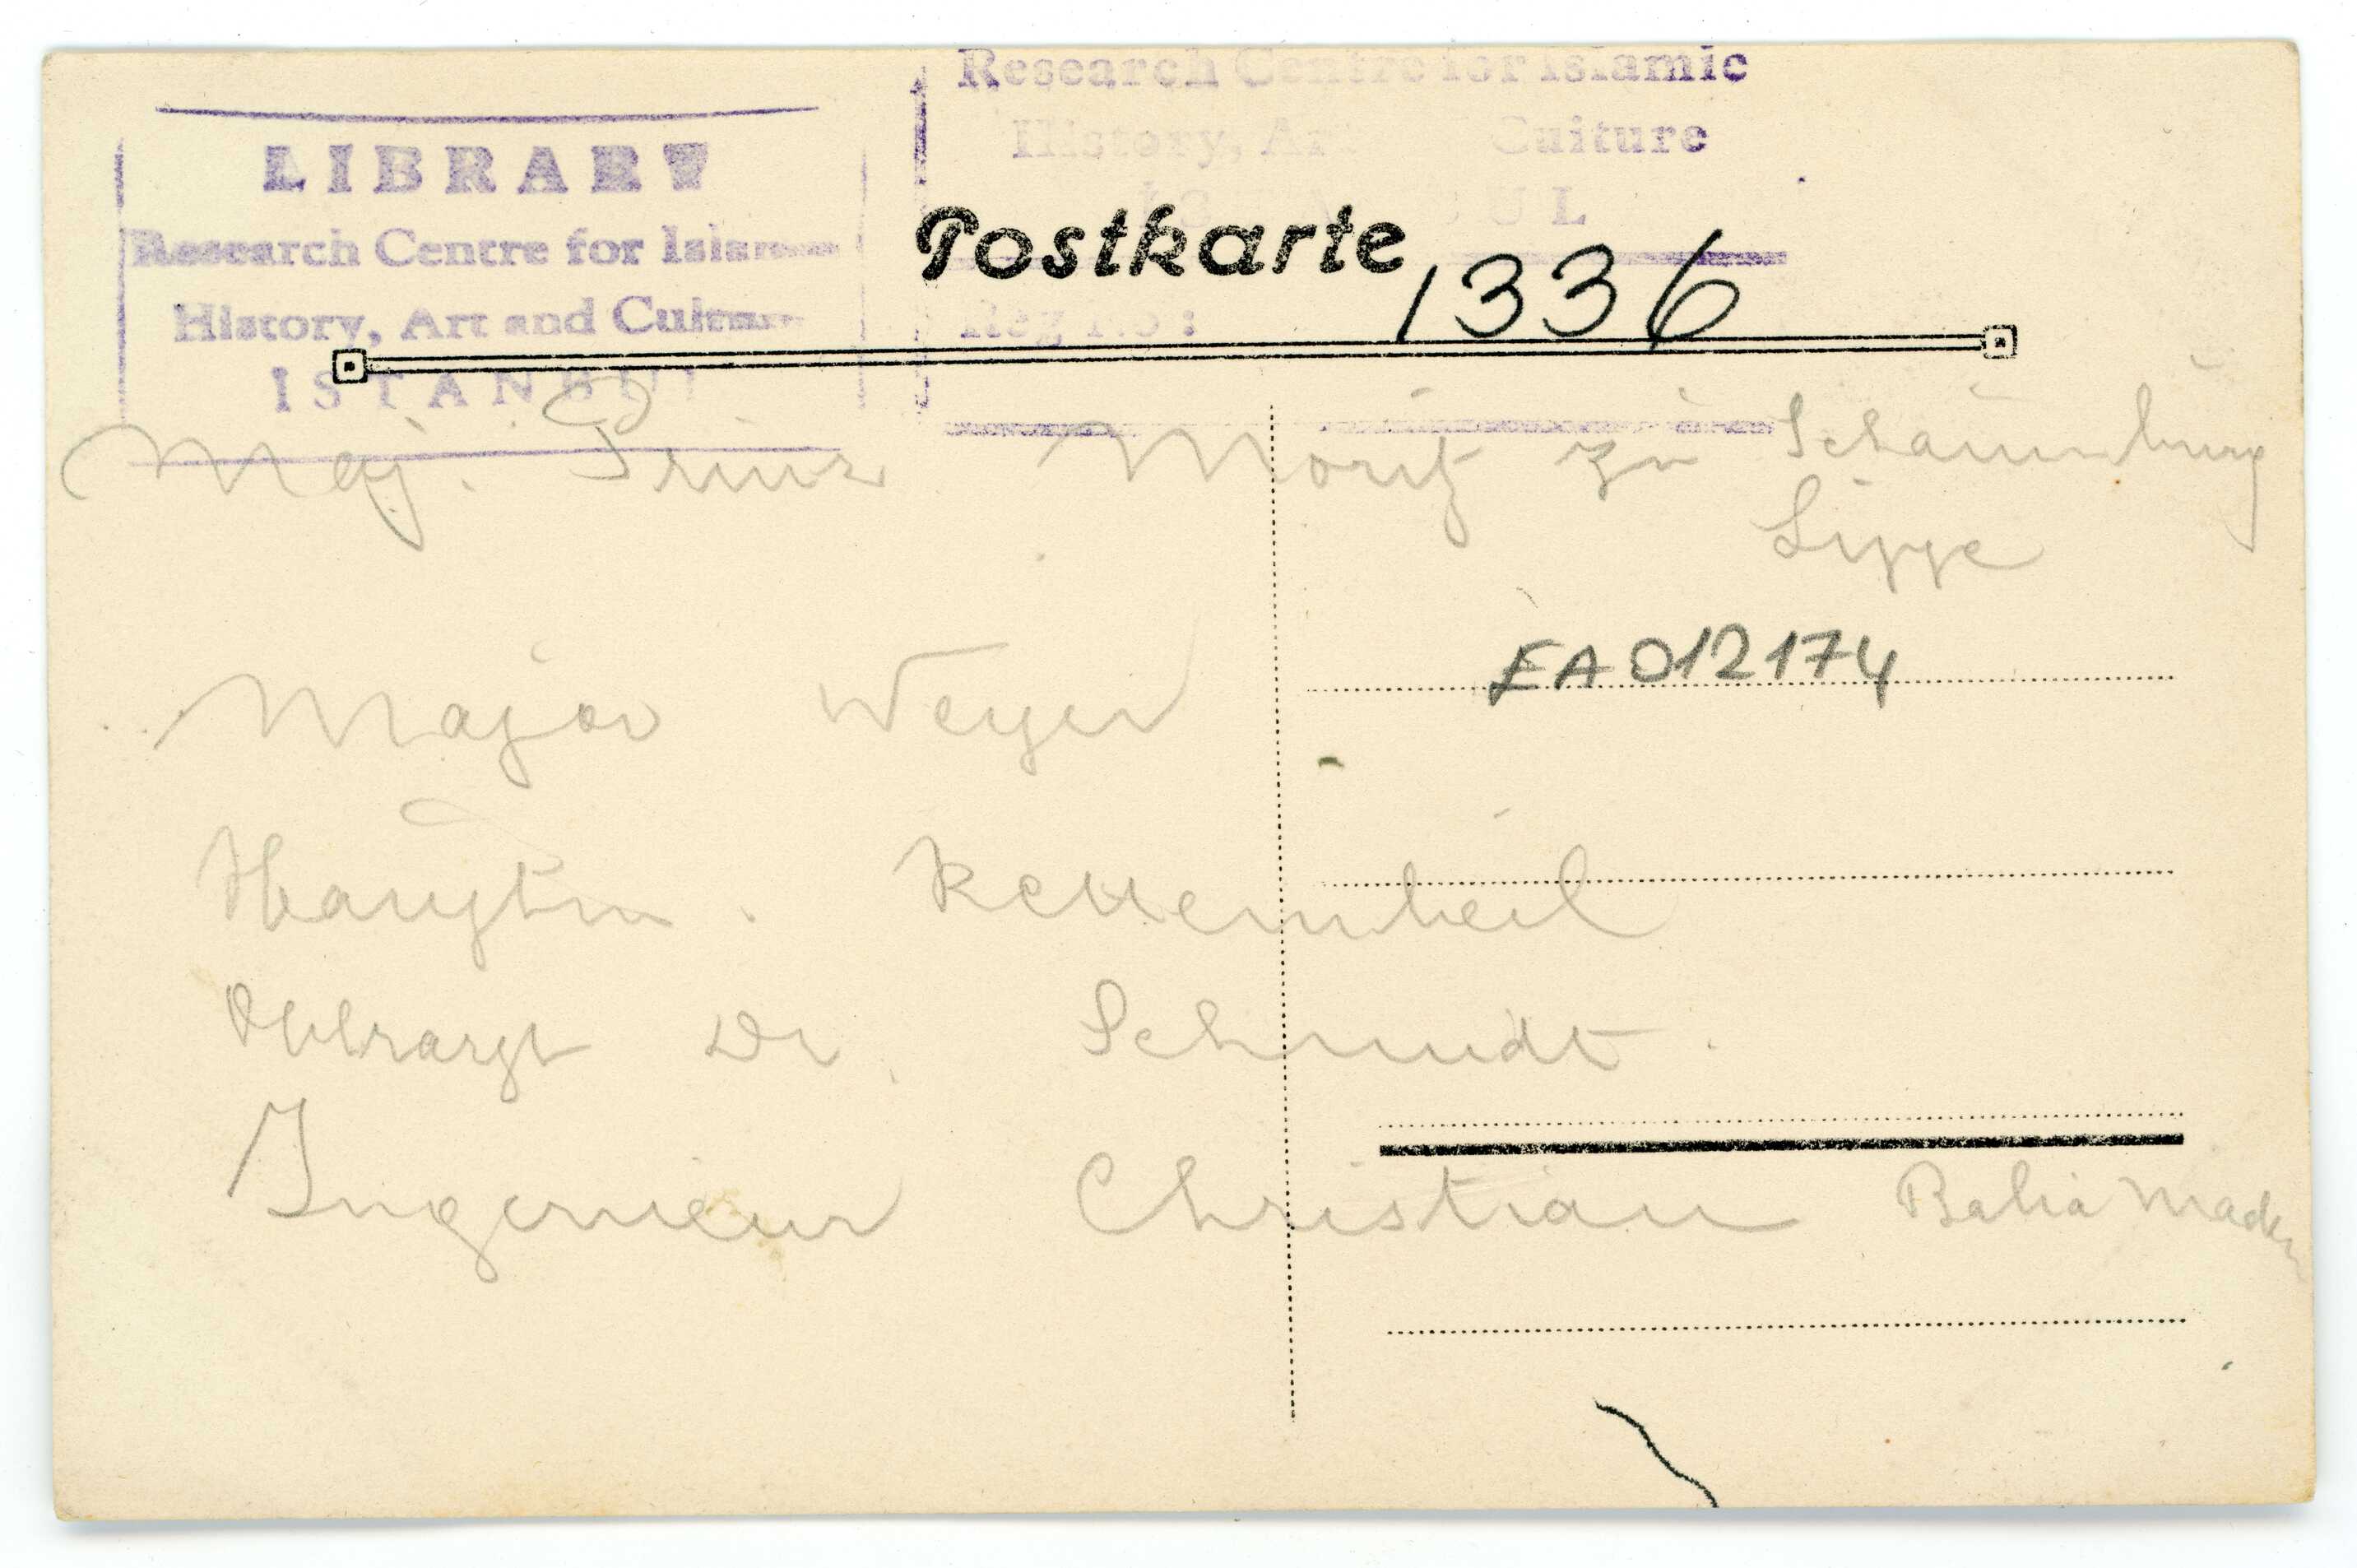 LIBRARY
Research Centre for Islamic
History, Art and Culture
ISTANBUL
Research Centre for Islamic
History, Art Culture
Reg No :
Postkarte
1336
Maj. Prinz Moritz zu Schaumburg
Lippe
EA012174
Major Weyer
Hauptm.
Dr. Schmidt.
Ingenieur Christian